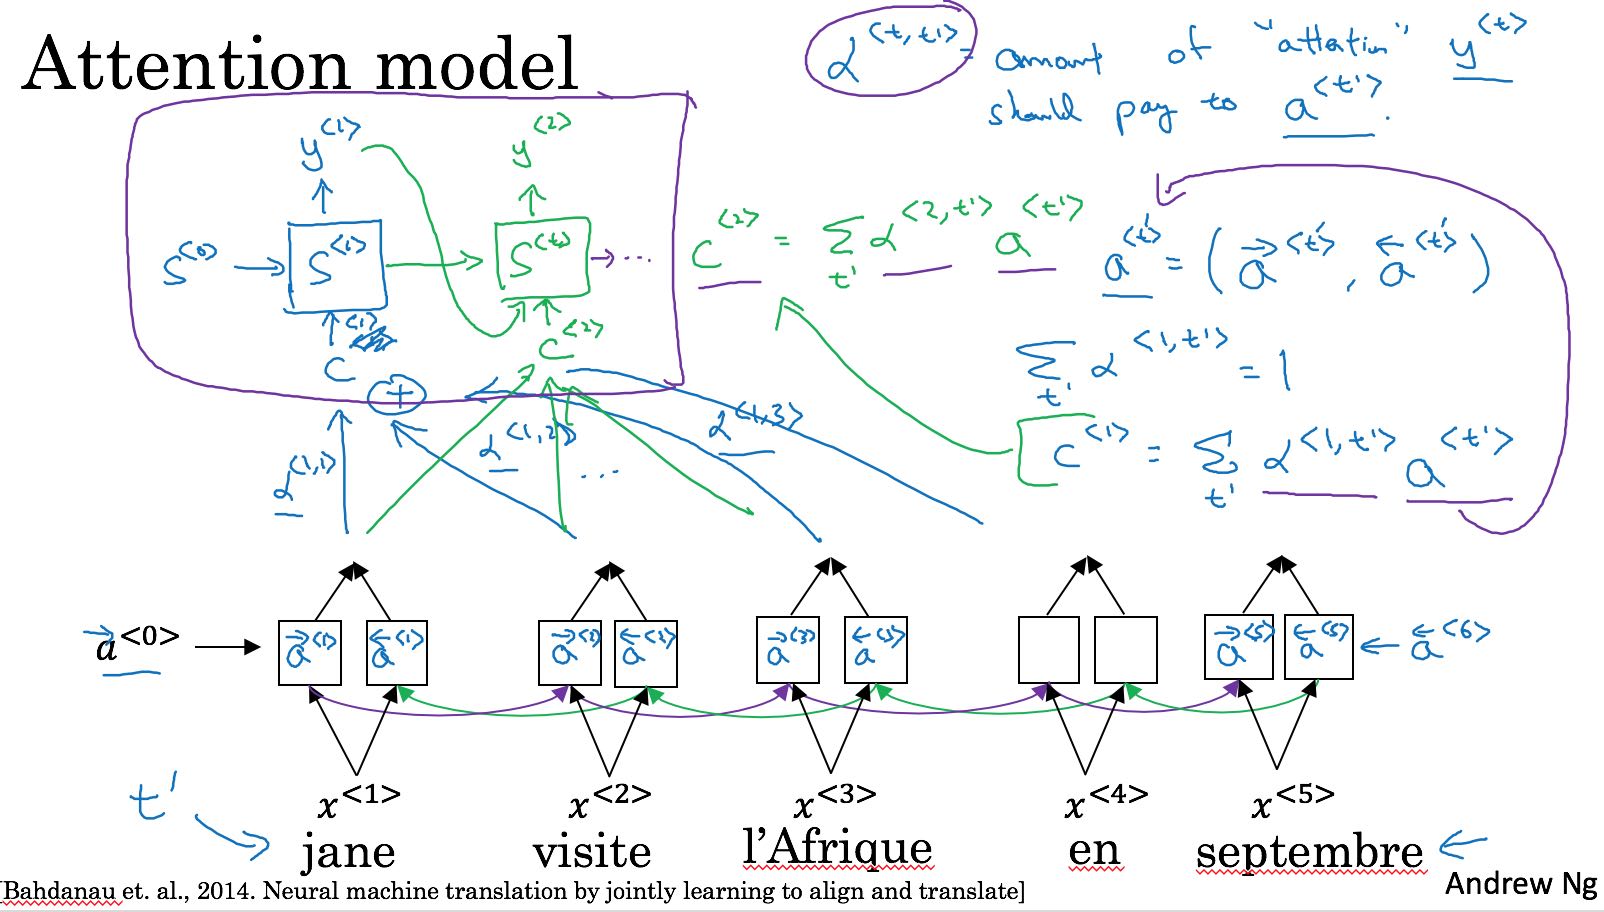 Attention model
α<t,t'> = amount of "attention" y<t>
should pay to a<t'>.
y<1> y<2>
s<0> → S<1> → S<t> → ...
c<1> c<2>
+
c<2> = Σt' α<2,t'> a<t'>
a<t'> = (a→<t'>, a←<t'>)
Σt' α<1,t'> = 1
c<1> = Σt' α<1,t'> a<t'>
α<1,1> α<1,2> ... α<1,3>
a→<0> → a→<1> a←<1> a→<2> a←<2> a→<3> a←<3> a→<5> a←<5> ← a←<6>
t'
x<1> x<2> x<3> x<4> x<5>
jane visite l’Afrique en septembre
[Bahdanau et. al., 2014. Neural machine translation by jointly learning to align and translate]
Andrew Ng